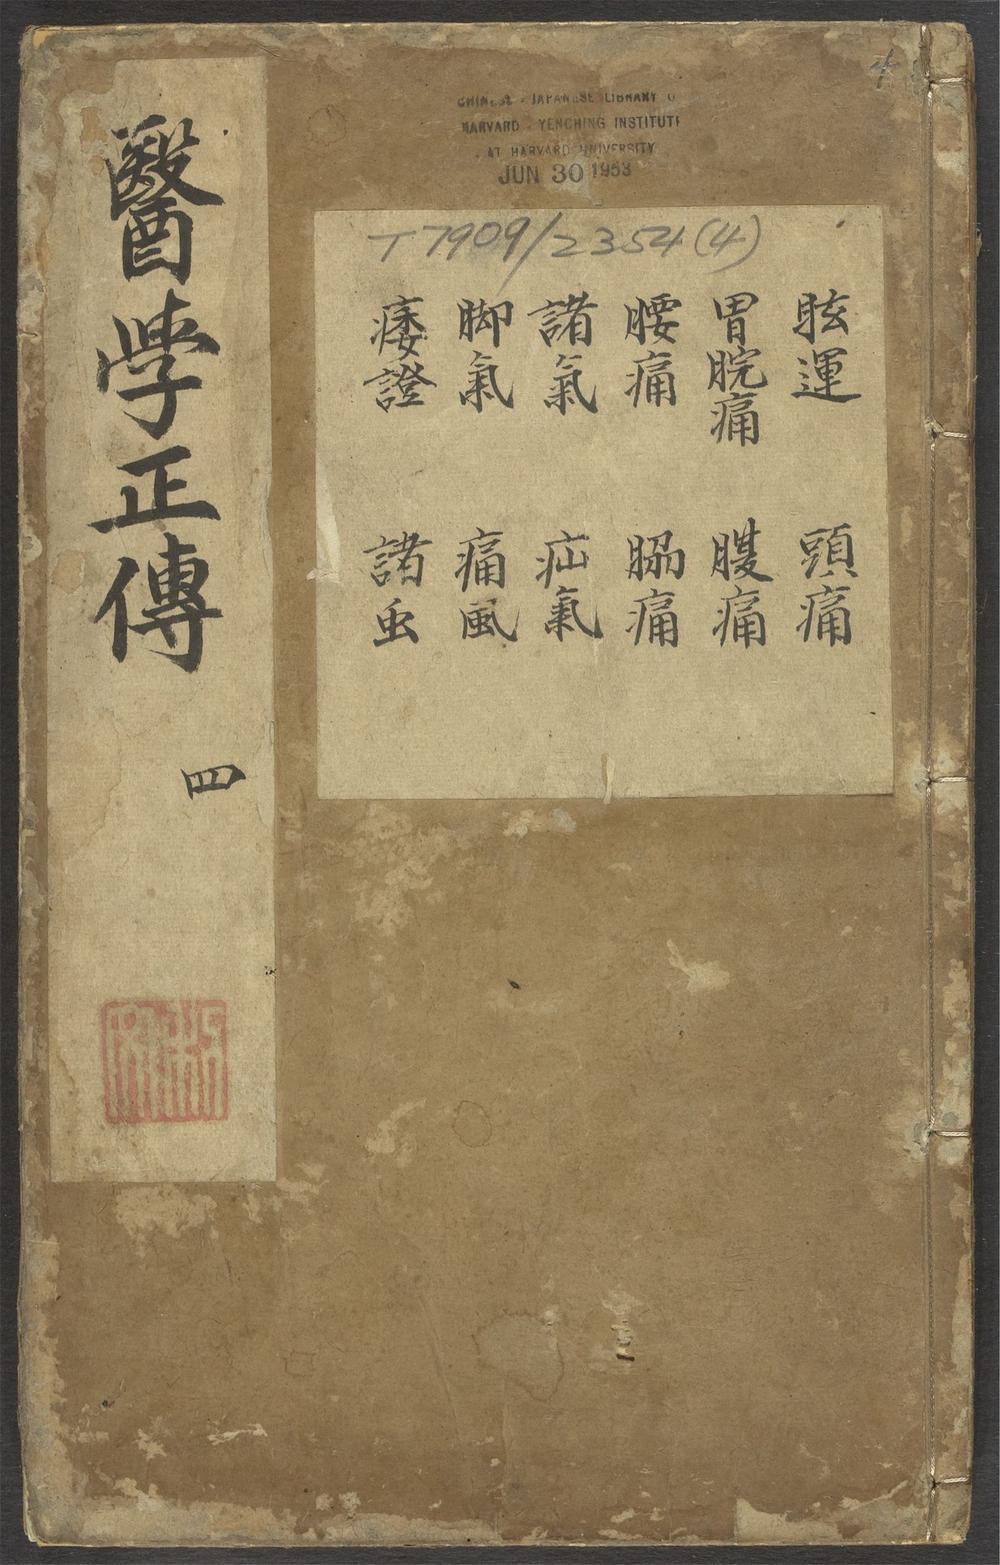 CHINESE - JAPANESE LIBRARY O
HARVARD - YENCHING INSTITUTE
AT HARVARD UNIVERSITY
JUN 30 1953
T7909/2354(4)
眩運 頭痛
胃脘痛 腹痛
腰痛 脇痛
諸氣 疝氣
脚氣 痛風
痿證 諸虫
醫学正傳 四
4